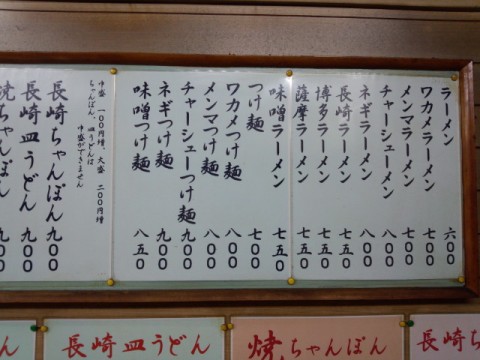 ラーメン 六〇〇
ワカメラーメン 七〇〇
メンマラーメン 七〇〇
チャーシューメン 八〇〇
ネギラーメン 八〇〇
長崎ラーメン 七五〇
博多ラーメン 七五〇
薩摩ラーメン 七五〇
味噌ラーメン 七五〇
つけ麺 七〇〇
ワカメつけ麺 八〇〇
メンマつけ麺 八〇〇
チャーシューつけ麺 九〇〇
ネギつけ麺 九〇〇
味噌つけ麺 八五〇
中盛 一〇〇円増、大盛 二〇〇円増
ちゃんぽん、皿うどんは
中盛ができません
長崎ちゃんぽん 九〇〇
長崎皿うどん 九〇〇
焼ちゃんぽん 九〇〇
ん
長崎皿うどん
焼ちゃんぽん
長崎ち